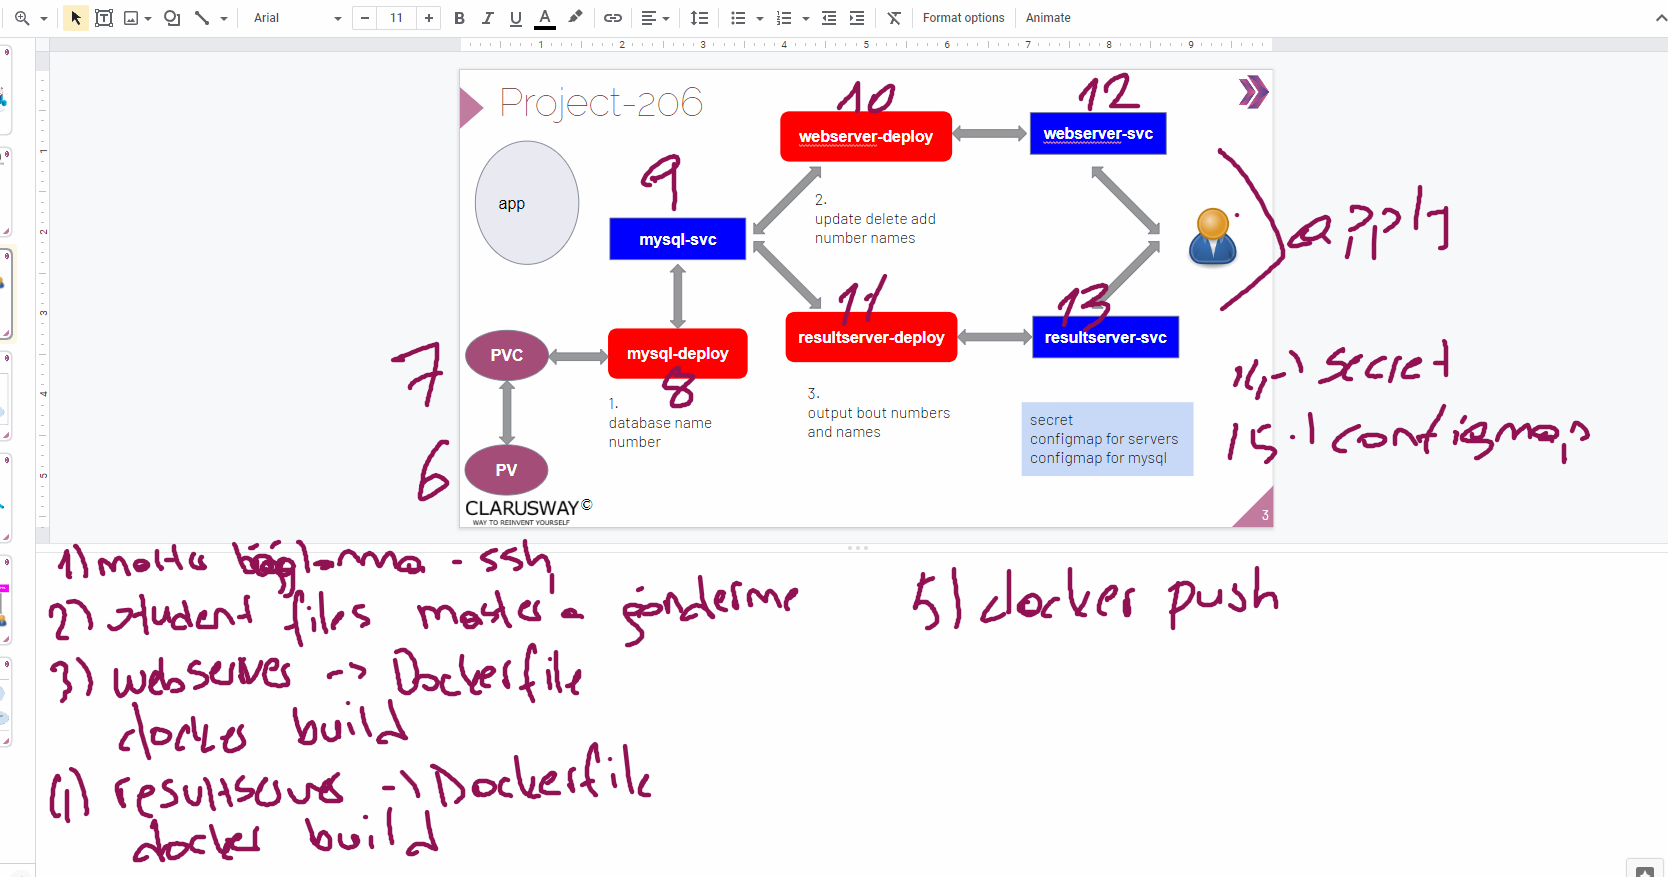 Arial
11
B I U A
Format options
Animate
1 2 3 4 5 6 7 8 9
1
2
3
4
5
Project-206
10
12
webserver-deploy
webserver-svc
9
app
2.
update delete add
number names
mysql-svc
apply
11
13
resultserver-deploy
resultserver-svc
7
PVC
mysql-deploy
8
1.
database name
number
3.
output bout numbers
and names
secret
configmap for servers
configmap for mysql
14-) secret
15-) configmap
6
PV
CLARUSWAY©
WAY TO REINVENT YOURSELF
3
1) bağlanma - ssh
2) student files master a gönderme
3) webserver -> Dockerfile
docker build
4) resultserver -> Dockerfile
docker build
5) docker push